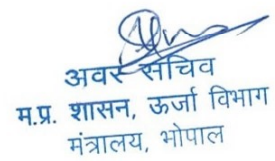 अवर सचिव
म.प्र. शासन, ऊर्जा विभाग
मंत्रालय, भोपाल